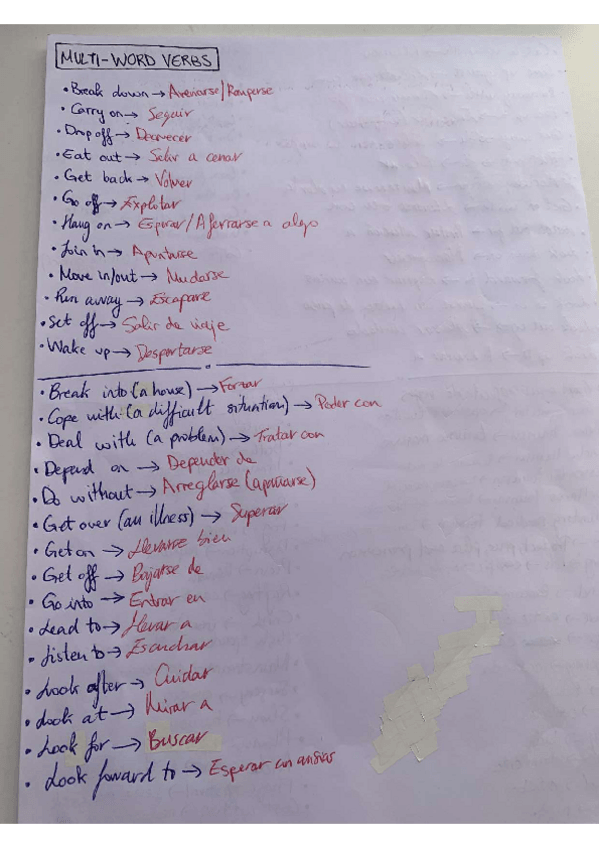 MULTI-WORD VERBS
• Break down → Averiarse/Romperse
• Carry on → Seguir
• Drop off → Decrecer
• Eat out → Salir a cenar
• Get back → Volver
• Go off → Explotar
• Hang on → Esperar/Aferrarse a algo
• Join in → Apuntarse
• Move in/out → Mudarse
• Run away → Escaparse
• Set off → Salir de viaje
• Wake up → Despertarse
• Break into (a house) → Forzar
• Cope with (a difficult situation) → Poder con
• Deal with (a problem) → Tratar con
• Depend on → Depender de
• Do without → Arreglarse (apañarse)
• Get over (an illness) → Superar
• Get on → Llevarse bien
• Get off → Bajarse de
• Go into → Entrar en
• Lead to → Llevar a
• Listen to → Escuchar
• Look after → Cuidar
• Look at → Mirar a
• Look for → Buscar
• Look forward to → Esperar con ansias